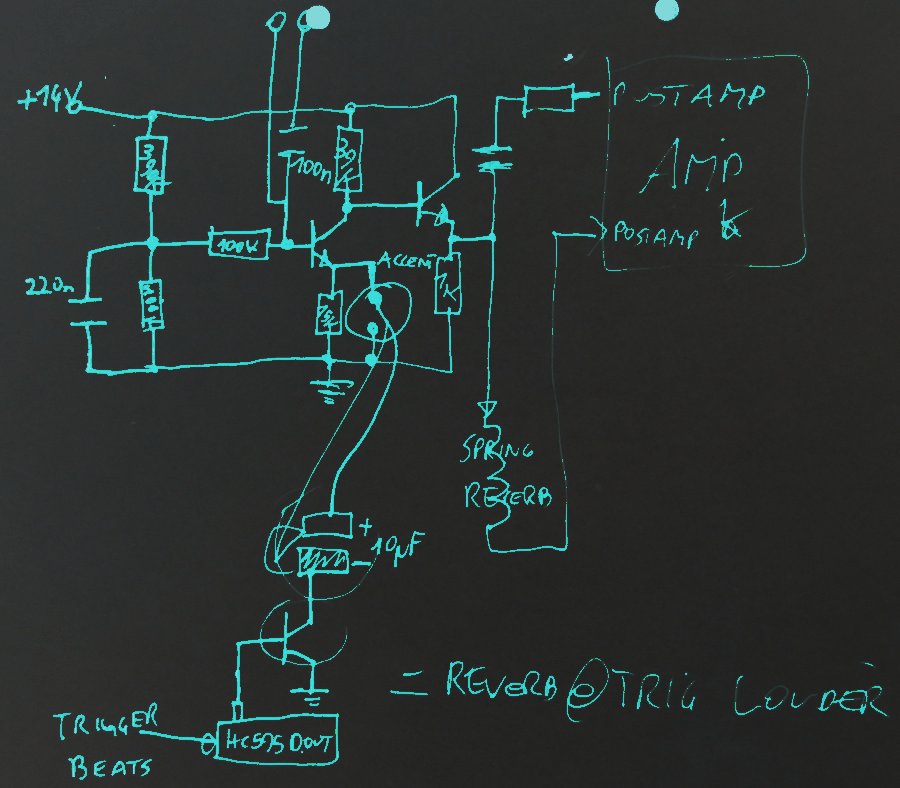 +14V
100n
100K
220n
ACCENT
1K
AMP
POSTAMP
SPRING
REVERB
+
10µF
-
= REVERB @ TRIG LOUDER
TRIGGER
BEATS
HC595 D.OUT